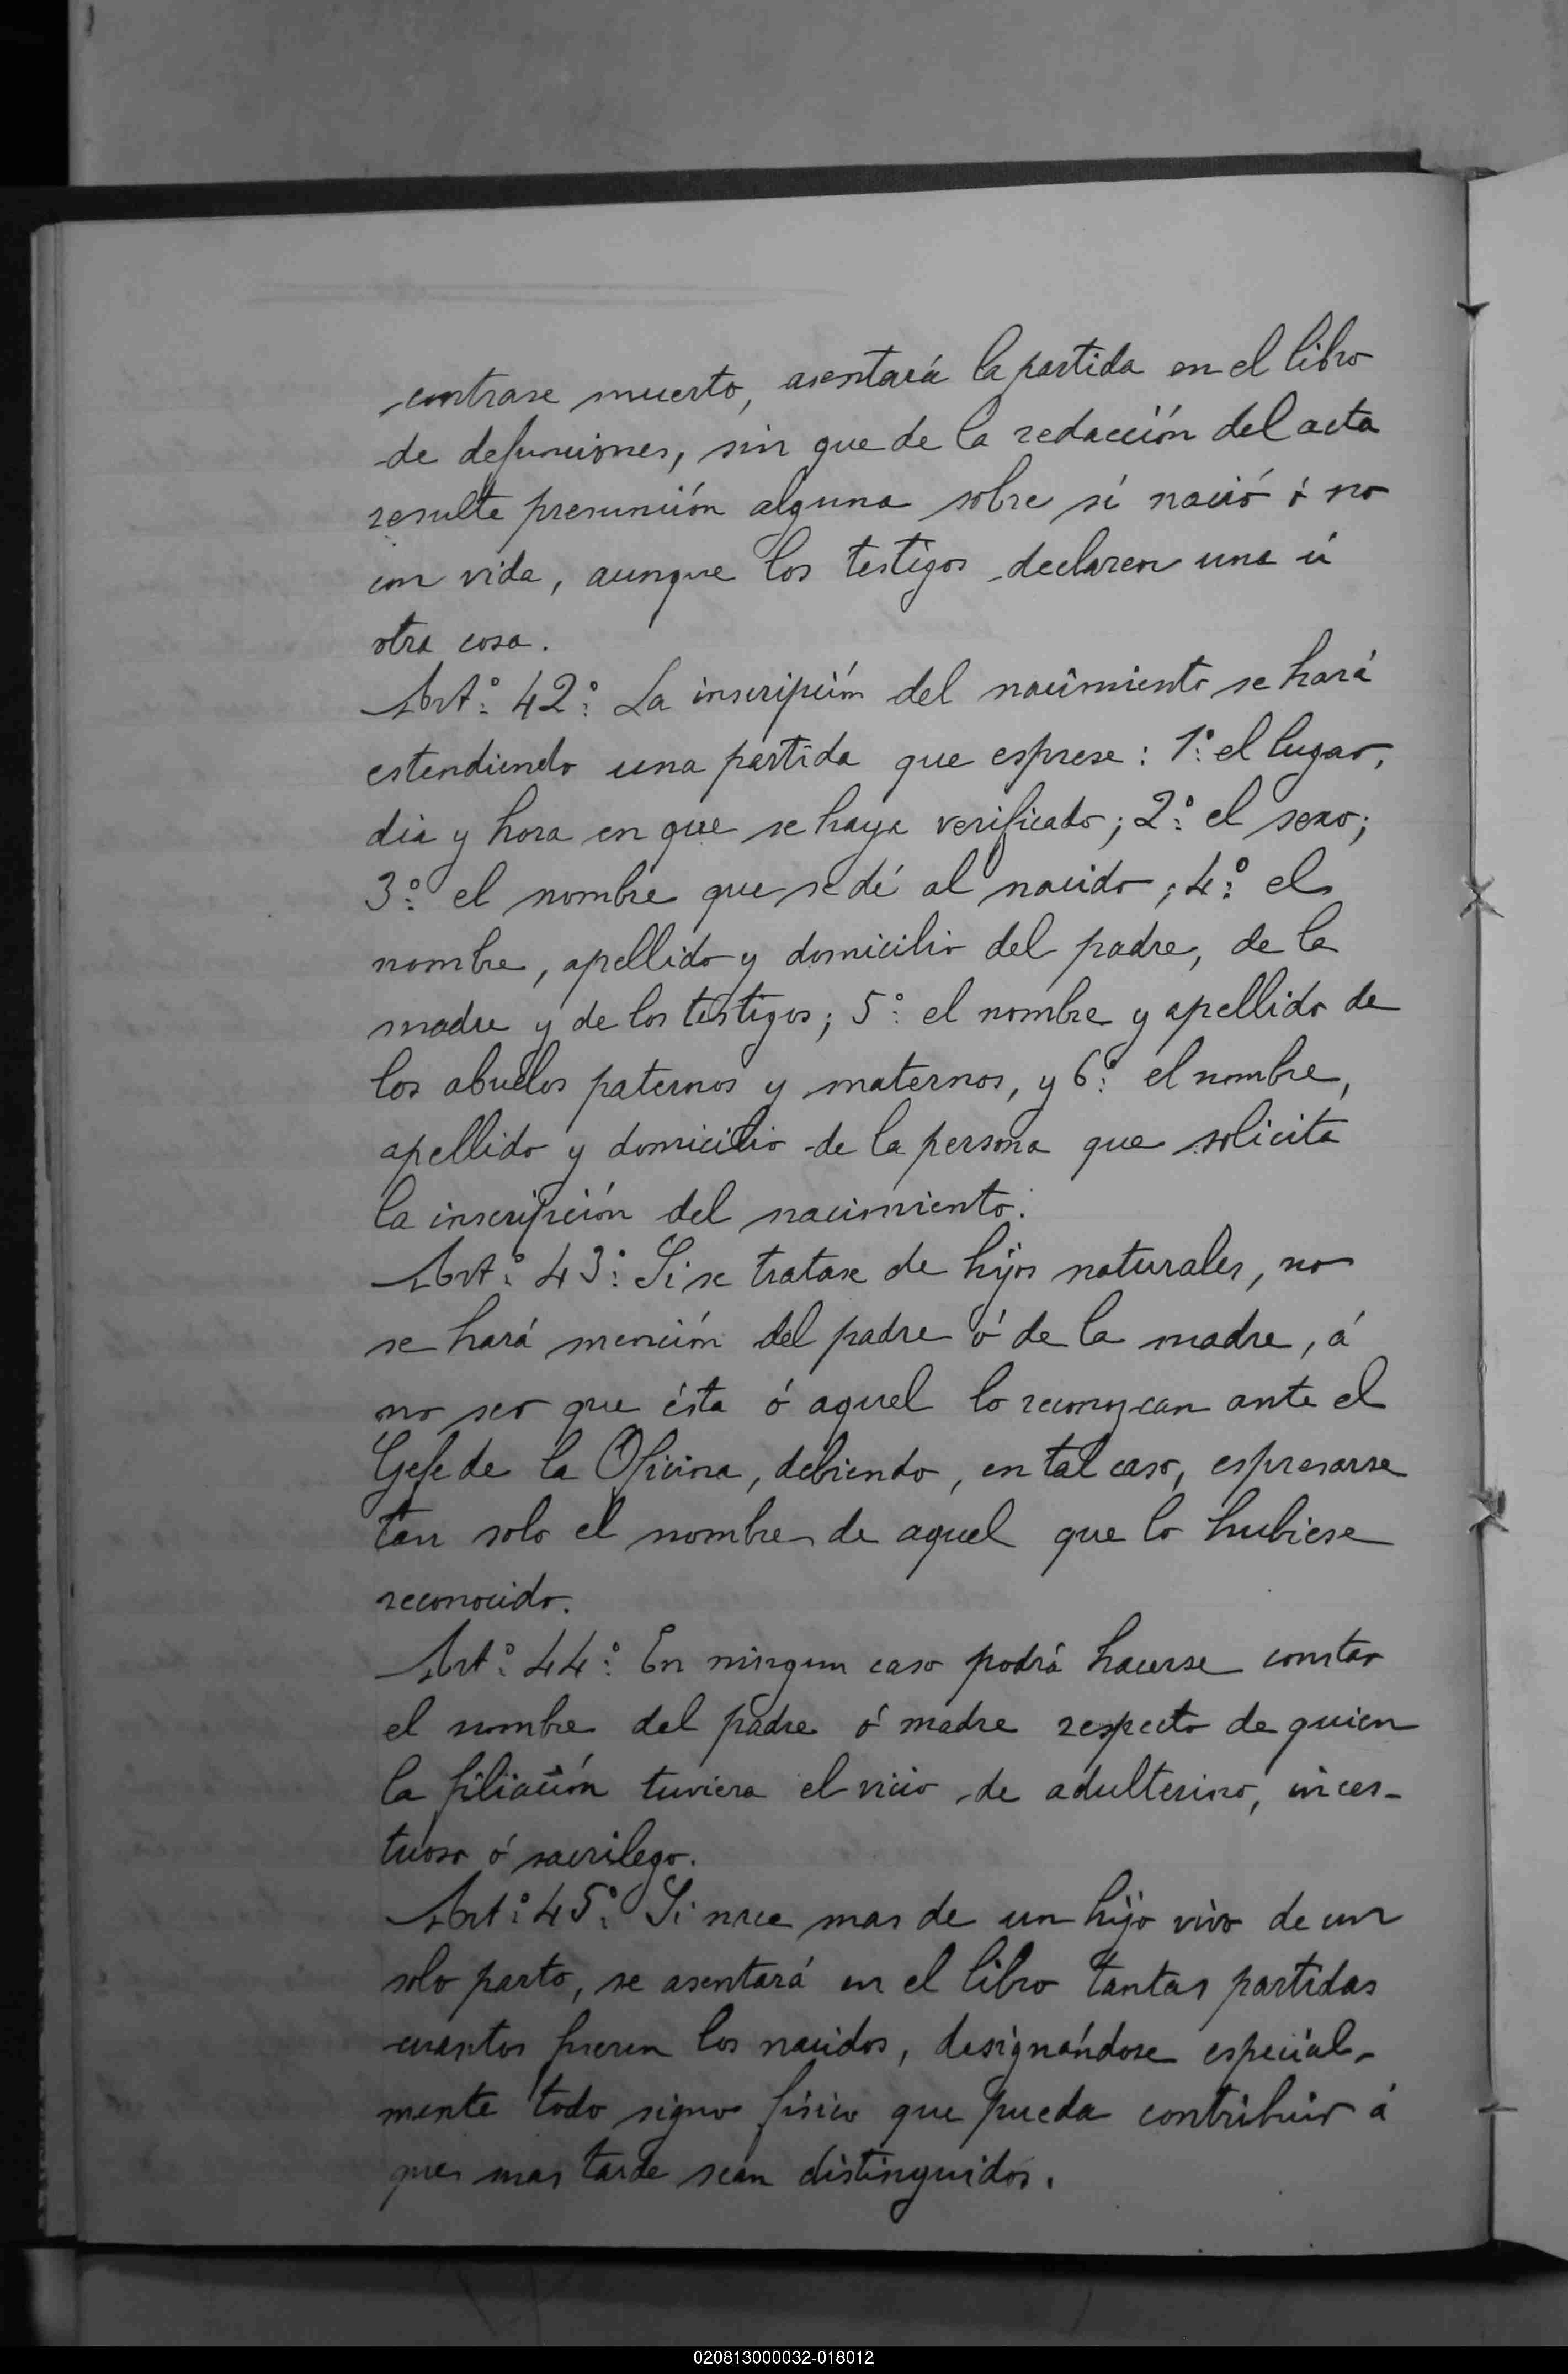 contrase muerto, asentará la partida en el libro
de defunciones, sin que de la redacción del acta
resulte presunción alguna sobre si nació ó no
con vida, aunque los testigos declaren una ú
otra cosa.
Artº 42º La inscripción del nacimiento se hará
estendiendo una partida que esprese: 1º el lugar,
dia y hora en que se haya verificado; 2º el sexo;
3º el nombre que se dé al nacido; 4º el
nombre, apellido y domicilio del padre, de la
madre y de los testigos; 5º el nombre y apellido de
los abuelos paternos y maternos, y 6º el nombre,
apellido y domicilio de la persona que solicita
la inscripción del nacimiento.
Artº 43º Si se tratase de hijos naturales, no
se hará mención del padre ó de la madre, á
no ser que ésta ó aquel lo reconozcan ante el
Gefe de la Oficina, debiendo, en tal caso, espresarse
tan solo el nombre de aquel que lo hubiese
reconocido.
Artº 44º En ningun caso podrá hacerse constar
el nombre del padre ó madre respecto de quien
la filiación tuviera el vicio de adulterino, inces-
tuoso ó sacrilego.
Artº 45º Si nace mas de un hijo vivo de un
solo parto, se asentará en el libro tantas partidas
cuantos fueren los nacidos, designándose especial-
mente todo signo físico que pueda contribuir á
que mas tarde sean distinguidos.
020813000032-018012